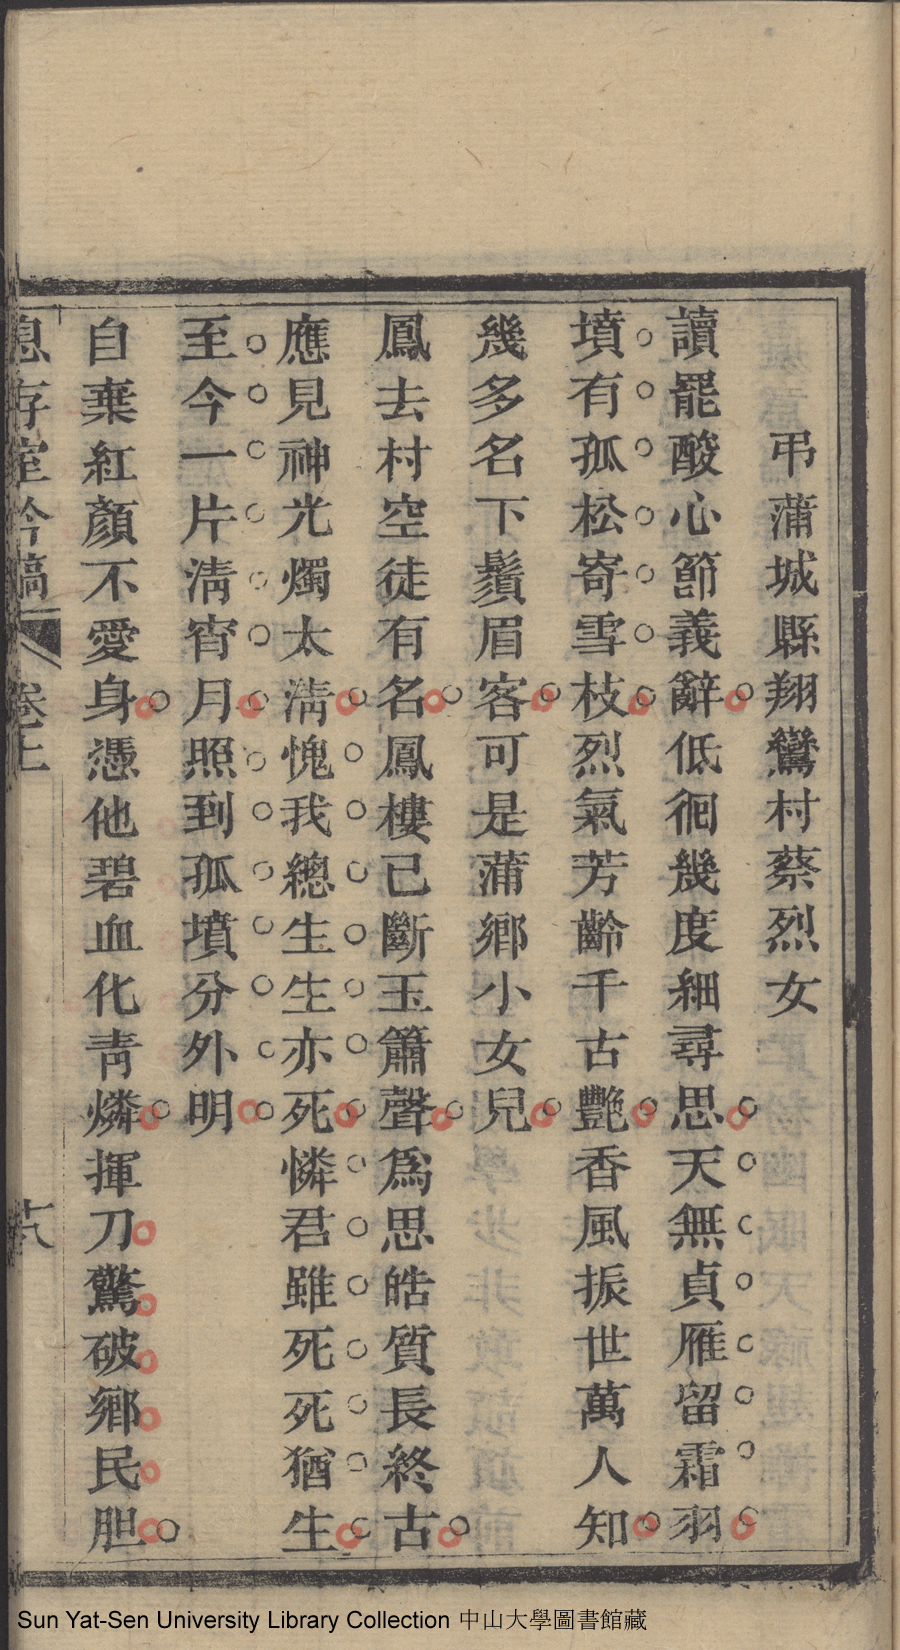 弔蒲城縣翔鸞村蔡烈女
讀罷酸心節義辭低徊幾度細尋思天無貞雁留霜羽
墳有孤松寄雪枝烈氣芳齡千古艷香風振世萬人知
幾多名下鬚眉客可是蒲鄉小女兒
鳳去村空徒有名鳳樓已斷玉簫聲爲思皓質長終古
應見神光燭太淸愧我總生生亦死憐君雖死死猶生
至今一片淸宵月照到孤墳分外明
自棄紅顏不愛身憑他碧血化靑燐揮刀驚破鄉民胆
息存室吟稿 卷上 十八
Sun Yat-Sen University Library Collection 中山大學圖書館藏